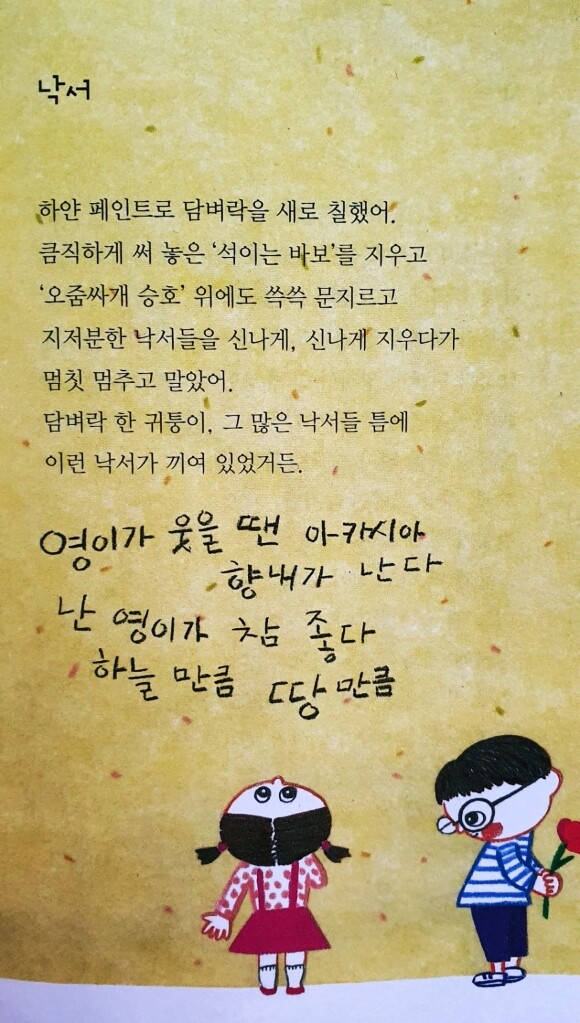 낙서
하얀 페인트로 담벼락을 새로 칠했어.
큼직하게 써 놓은 '석이는 바보'를 지우고
'오줌싸개 승호' 위에도 쓱쓱 문지르고
지저분한 낙서들을 신나게, 신나게 지우다가
멈칫 멈추고 말았어.
담벼락 한 귀퉁이, 그 많은 낙서들 틈에
이런 낙서가 끼여 있었거든.
영이가 웃을 땐 아카시아
향내가 난다
난 영이가 참 좋다
하늘 만큼 땅 만큼